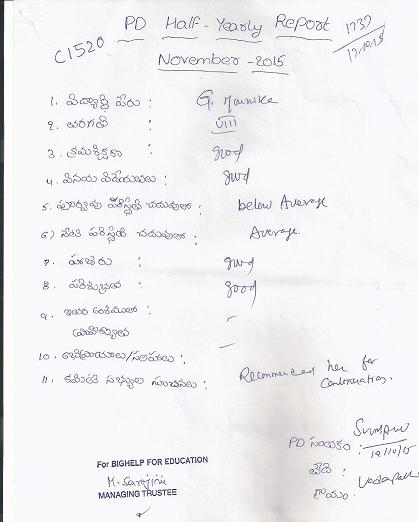 PD Half-Yearly Report
C1520
1737
17/10/15
November-2015
1. విద్యార్థి పేరు : G. Mounika
2. తరగతి : VIII
3. క్రమశిక్షణ : good
4. వినయ విధేయతలు : good
5. పూర్వపు పరిస్థితి చదువులో : below Average
6) నేటి పరిస్థితి చదువులో : Average.
7. హాజరు : good
8. పరిశుభ్రత : good
9. ఇతర అంశములు : -
-
10. అభిప్రాయాలు/సలహాలు :
11. కమిటి సభ్యుల సూచనలు : Recommended her for
Continuation.
PD సంతకం :
19/10/15
తేది :
గ్రామం :
For BIGHELP FOR EDUCATION
M. Sarojini
MANAGING TRUSTEE